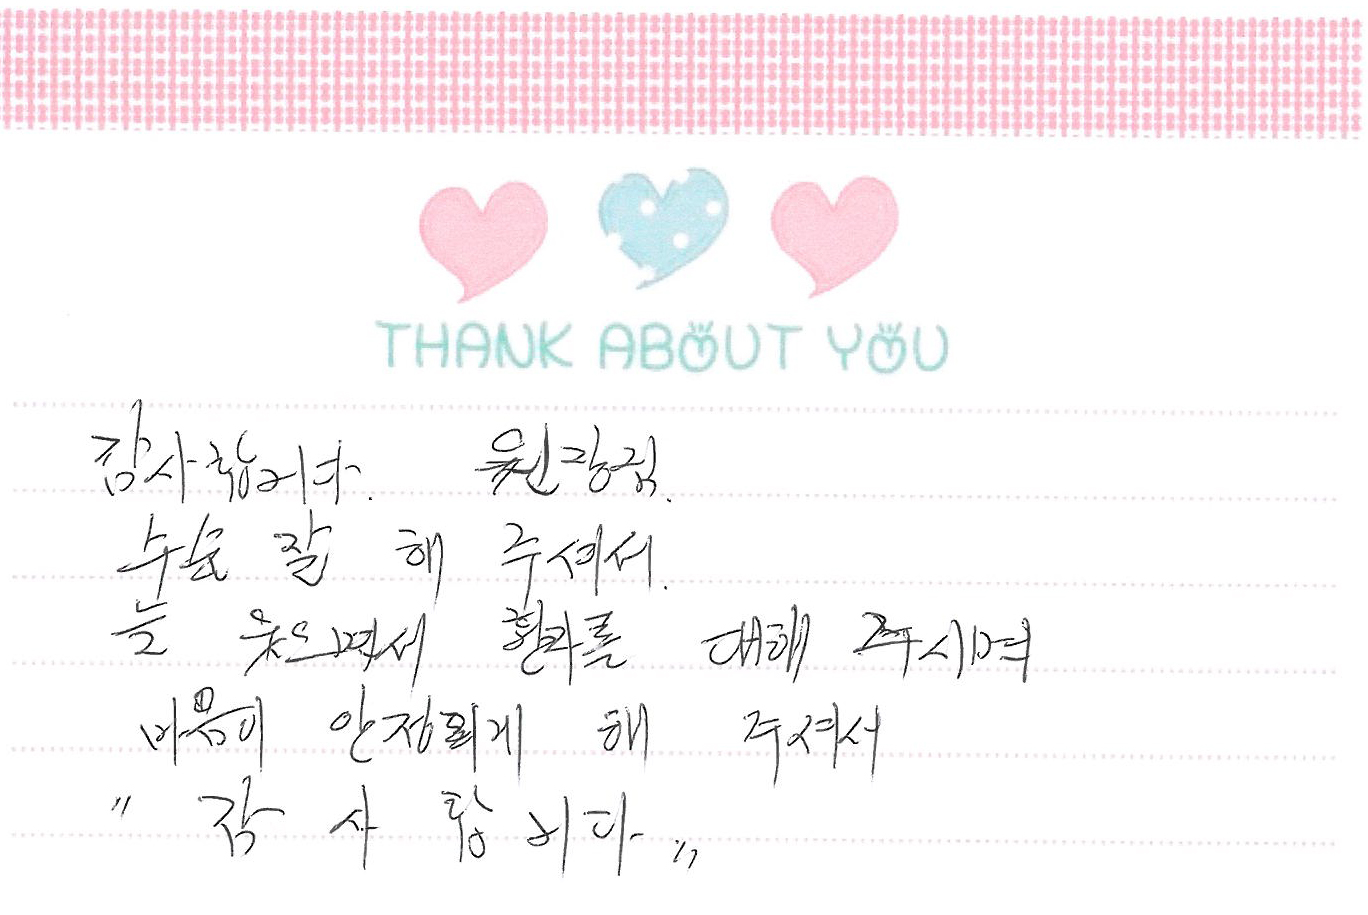 THANK ABOUT YOU
감사합니다. 원장님.
수술 잘 해 주셔서.
늘 웃으면서 환자를 대해 주시며
마음이 안정되게 해 주셔서
" 감 사 합 니 다. "